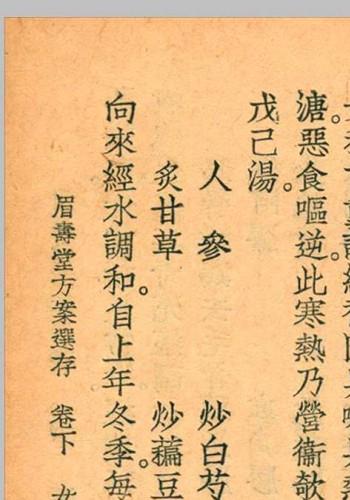 溏惡食嘔逆。此寒熱乃營衞欹
戊己湯。
人參 炒白芍
炙甘草 炒藊豆
向來經水調和。自上年冬季。每
眉壽堂方案選存 卷下 女